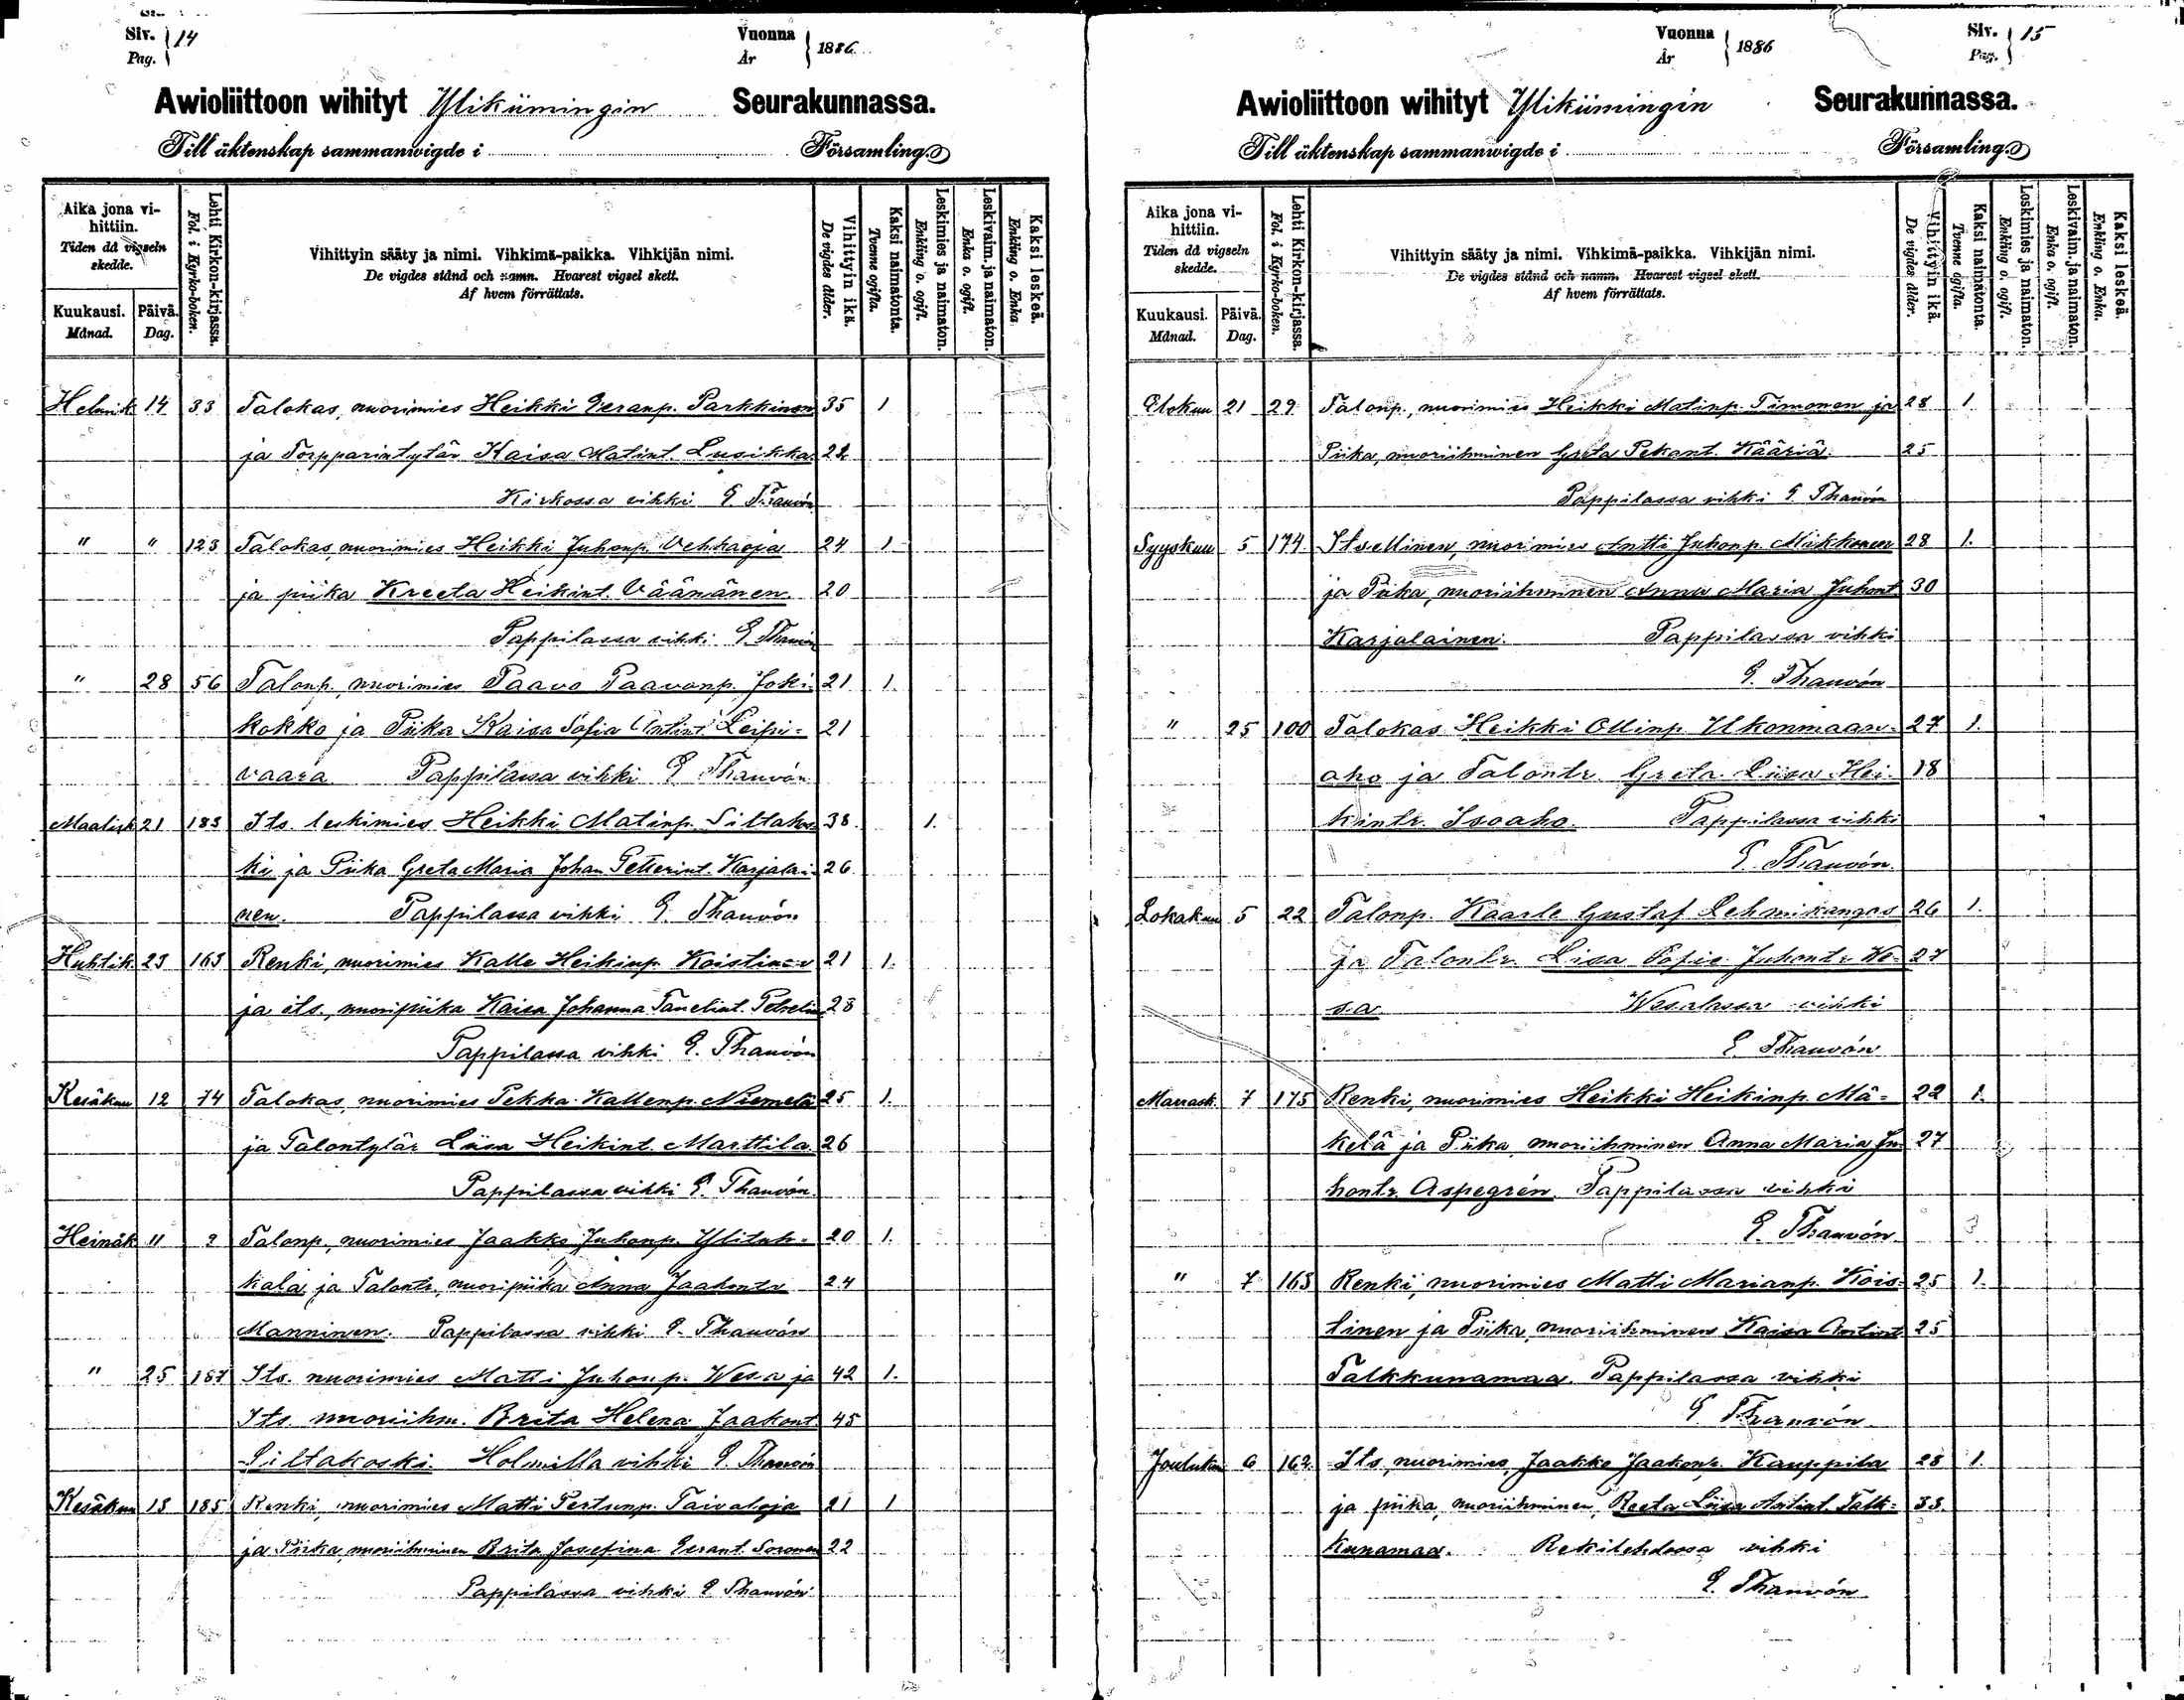 Siv. 14
Pag.
Vuonna 1886.
År
Awioliittoon wihityt Ylikiimingin Seurakunnassa.
Till äktenskap sammanwigde i Församling.
Aika jona vihittiin.
Tiden då vigseln skedde.
Kuukausi.
Månad.
Päivä.
Dag.
Lehti Kirkon-kirjassa.
Fol. i Kyrko-boken.
Vihittyin sääty ja nimi. Vihkimä-paikka. Vihkijän nimi.
De vigdes stånd och namn. Hvarest vigsel skett.
Af hvem förrättats.
Vihittyin ikä.
De vigdes ålder.
Kaksi naimatonta.
Tvenne ogifta.
Leskimies ja naimaton.
Enkling o. ogift.
Leskivaim. ja naimaton.
Enka o. ogift.
Kaksi leskeä.
Enkling o. Enka
Helmik 14 33 Talokas, nuorimies Heikki Eeranp. Parkkinen 35 1
ja Torpparintytär Kaisa Matint. Lusikka 22
Kirkossa vihki E. Thauvón
" " 123 Talokas, nuorimies Heikki Juhonp. Vehkaoja 24 1
ja piika Kreeta Heikint. Väänänen 20
Pappilassa vihki E. Thauvón
" 28 56 Talonp., nuorimies Paavo Paavonp. Joki- 21 1.
kokko ja Piika Kaisa Sofia Antint. Leipi= 21
vaara Pappilassa vihki E Thauvón
Maalisk 21 183 Its. leskimies Heikki Matinp. Siltakos- 38 1.
ki ja Piika Greta Maria Johan Petterint. Karjalai- 26
nen. Pappilassa vihki E. Thauvón
Huhtik. 23 163 Renki, nuorimies Kalle Heikinp. Koistinen 21 1.
ja its., nuoripiika Kaisa Johanna Tanelint. Petrelius 28
Pappilassa vihki E. Thauvón
Kesäkuu 12 74 Talokas, nuorimies Pekka Kallenp. Niemelä 25 1.
ja Talontytär Liisa Heikint. Marttila 26
Pappilassa vihki E. Thauvón.
Heinäk 11 2 Talonp., nuorimies Jaakko Juhonp. Ylituh- 20 1.
kala ja Talontr., nuoripiika Anna Jaakontr 24
Manninen. Pappilassa vihki E. Thauvón
" 25 187 Its. nuorimies Matti Juhonp. Wesa ja 42 1.
Its. nuoriihm. Brita Helena Jaakont 45
Siltakoski. Holmilla vihki E. Thauvón
Kesäkuu 13 185 Renki, nuorimies Matti Pertunp. Taivaloja 21 1
ja Piika, nuoriihminen Brita Josefina Eerant. Soronen 22
Pappilassa vihki E Thauvón
Siv. 15
Pag.
Vuonna 1886
År
Awioliittoon wihityt Ylikiimingin Seurakunnassa.
Till äktenskap sammanwigde i Församling.
Aika jona vihittiin.
Tiden då vigseln skedde.
Kuukausi.
Månad.
Päivä.
Dag.
Lehti Kirkon-kirjassa.
Fol. i Kyrko-boken.
Vihittyin sääty ja nimi. Vihkimä-paikka. Vihkijän nimi.
De vigdes stånd och namn. Hvarest vigsel skett.
Af hvem förrättats.
Vihittyin ikä.
De vigdes ålder.
Kaksi naimatonta.
Tvenne ogifta.
Leskimies ja naimaton.
Enkling o. ogift.
Leskivaim. ja naimaton.
Enka o. ogift.
Kaksi leskeä.
Enkling o. Enka.
Elokuu 21 29 Talonp., nuorimies Heikki Matinp. Timonen ja 28 1.
Piika, nuoriihminen Greta Pekant. Kääriä 25
Pappilassa vihki E. Thauvón
Syyskuu 5 174 Itsellinen, nuorimies Antti Juhonp. Mikkonen 28 1.
ja Piika, nuoriihminen Anna Maria Juhont 30
Karjalainen. Pappilassa vihki
E. Thauvón
" 25 100 Talokas Heikki Ollinp. Ukonmaan- 27 1.
aho ja Talontr. Greta Liisa Hei- 18
kintr. Isoaho. Pappilassa vihki
E. Thauvón.
Lokakuu 5 22 Talonp. Kaarle Gustaf Lehmikangas 26 1.
ja Talontr. Lisa Sofia Juhontr We- 27
sa Wesalassa vihki
E Thauvón
Marrask. 7 175 Renki, nuorimies Heikki Heikinp. Mä= 22 1.
kelä ja Piika, nuoriihminen Anna Maria Ju- 27
hontr. Aspegrén. Pappilassa vihki
E. Thauvón
" 7 163 Renki, nuorimies Matti Marianp. Kois- 25 1.
tinen ja Piika, nuoriihminen Kaisa Antint 25
Talkkunamaa. Pappilassa vihki
E. Thauvón.
Jouluku 6 162 Its., nuorimies, Jaakko Jaakonp. Kauppila 28 1.
ja piika, nuoriihminen, Reeta Liisa Antint. Talk= 33.
kunamaa. Rekilehdossa vihki
E. Thauvón